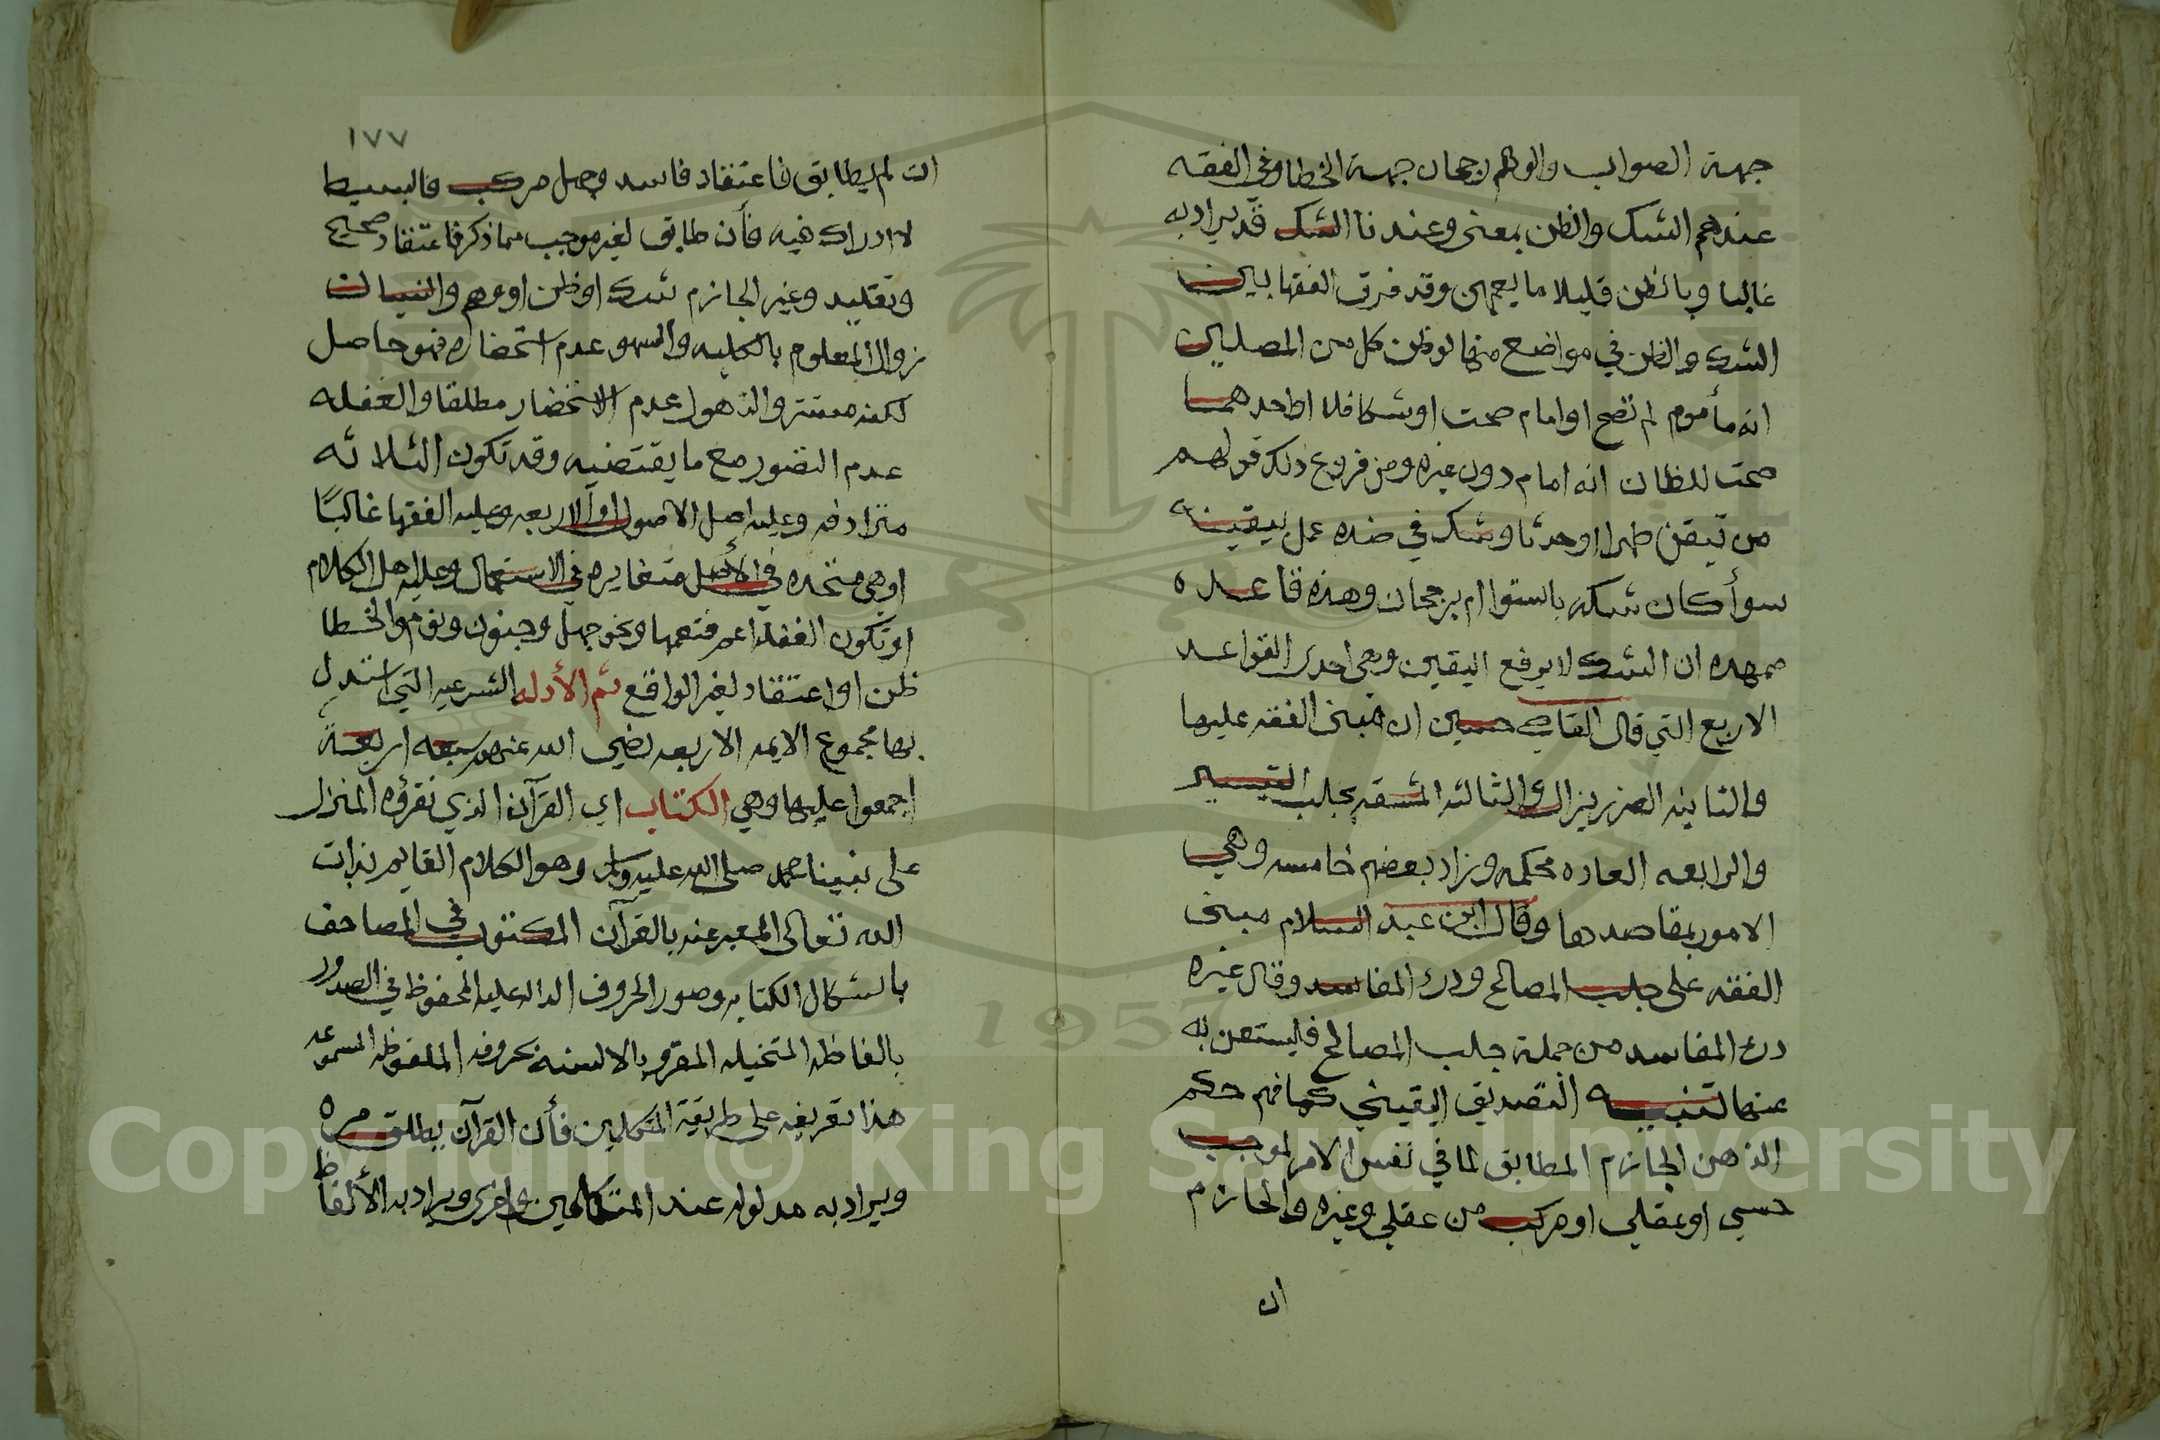 جهة الصواب والوهم رجحان جهة الخطا وفي الفقه
عندهم الشك والظن بمعنى وعندنا الشك قد يراد به
غالبا وبالظن قليلا ما يعمهن وقد فرق الفقها بين
الشك والظن في مواضع منها لو ظن كل من المصلين
انه مأموم لم تصح او امام صحت او شكا فلا او احدهما
صحت للظان انه امام دون غيره ومن فروع ذلك قولهم
من تيقن طهرا او حدثا وشك في ضده عمل بيقينه
سوأ كان شكه باستوا ام برجحان وهذه قاعده
ممهده ان الشك لا يرفع اليقين وهي احدى القواعد
الاربع التي قال القاضي حسين ان مبنى الفقه عليها
والثانيه الضرر يزال والثالثه المشقه تجلب التيسير
والرابعه العاده محكمه وزاد بعضهم خامسه وهي
الامور بمقاصدها وقال ابن عبد السلام مبنى
الفقه على جلب المصالح ودرء المفاسد وقال غيره
درء المفاسد من جملة جلب المصالح فاليستغن به
عنها تنبيه التصديق اليقيني كما فهم حكم
الذهن الجازم المطابق لما في نفس الامر لموجب
حسي او عقلي او مركب من عقلي وغيره والجازم
ان
١٧٧
ان لم يطابق فاعتقاد فاسد وجهل مركب فالبسيط
لا ادراك فيه فأن طابق لغير موجب مما ذكر فاعتقاد صحيح
وتقليد وغير الجازم شك او ظن او وهم والنسيان
زوال المعلوم بالكليه والسهو عدم استحضاره فهو حاصل
لكنه مستتر والذهول عدم الاستحضار مطلقا والغفله
عدم التصور مع ما يقتضيه وقد تكون الثلاثه
مترادفه وعليه اهل الاصول او الاربعه وعليه الفقها غالبًا
او هي متحده في الأصل متغايره في الاستعمال وعليه اهل الكلام
او تكون الغفله اعم فتعمها ونحو جهل وجنون ونوم والخطا
ظن او اعتقاد لغير الواقع ثم الأدله الشرعيه التي استدل
بها مجموع الايمه الاربعه رضي الله عنهم سبعه اربعة
اجمعوا عليها وهي الكتاب اي القرآن الذي نقرؤه المنزل
على نبينا محمد صلى الله عليه وسلم وهو الكلام القايم بذات
الله تعالى المعبر عنه بالقرآن المكتوب في المصاحف
باشكال الكتابه وصور الحروف الداله عليه المحفوظ في الصدور
بالفاظه المتخيله المقرو بالالسنة بحروفه الملفوظه المسموعه
هذا تعريفه على طريقة المتكلمين فأن القرآن يطلق مره
ويراد به مدلوله عند المتكلمين واخرى ويراد به الألفاظ